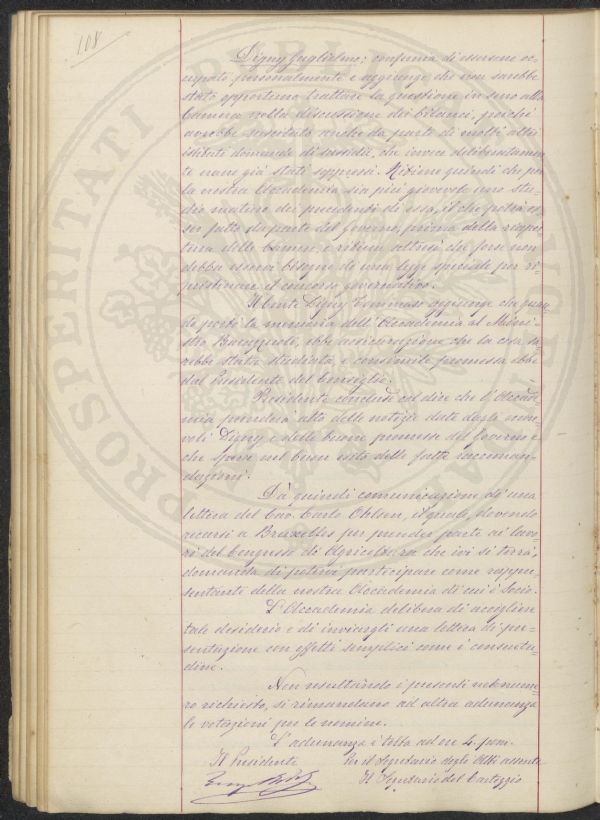 108
Digny Guglielmo; conferma di essersene oc-
cupato personalmente e aggiunge che non sarebbe
stato opportuno trattare la questione in seno alla
Camera nella discussione dei bilanci, poiché
avrebbe suscitato anche da parte di molti altri
istituti domande di sussidii, che invece deliberatamen-
te erano già stati soppressi. Ritiene quindi che per
la nostra Accademia sia più giovevole uno stu-
dio maturo dei precedenti di essa, il che potrà es-
ser fatto da parte del Governo, prima della riaper-
tura delle Camere e ritiene altresì che forse non
debba esservi bisogno di una legge speciale per ri-
pristinare il concorso governativo.
Il Conte Digny Tommaso aggiunge che quan-
do portò la memoria dell'Accademia al Mini-
stro Baccarini, ebbe assicurazione che la cosa sa-
rebbe stata studiata, e consimile promessa ebbe
dal Presidente del Consiglio.
Presidente conclude col dire che l'Accade-
mia prenderà atto delle notizie date dagli onor-
voli Digny e delle buone promesse del Governo e
che spera nel buon esito delle fatte raccoman-
dazioni.
Dà quindi comunicazione di una
lettera del Cav. Carlo Ohlsen, il quale, dovendo
recarsi a Bruxelles per prender parte ai lavo-
ri del Congresso di Agricoltura che ivi si terrà,
domanda di potervi partecipare come rappre-
sentante della nostra Accademia di cui è Socio.
L'Accademia delibera di accogliere
tale desiderio e di inviargli una lettera di pre-
sentazione con effetti semplici come è consuetu-
dine.
Non resultando i presenti nel nume-
ro richiesto, si rimandano ad altra adunanza
le votazioni per le nomine.
L'adunanza è tolta ad ore 4 pom.
Il Presidente Per il Segretario degli Atti assente
Il Segretario del Carteggio
PROSPERITATI PUBLICAE